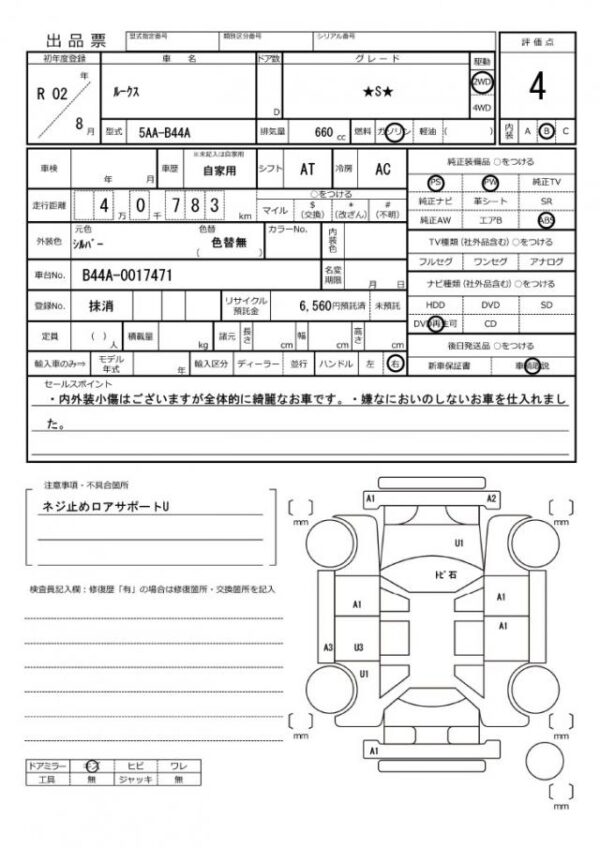 出品票 型式指定番号 類別区分番号 シリアル番号 評価点
初年度登録 車名 ドア数 グレード 駆動
R 02 年 ルークス ★S★ 2WD 4
8 月 D 4WD
型式 5AA-B44A 排気量 660 cc 燃料 ガソリン 軽油 ( ) 内装 A B C
車検 年 月 車歴 ※未記入は自家用 自家用 シフト AT 冷房 AC 純正装備品 ○をつける
PS PW 純正TV
走行距離 4 万 0 千 7 8 3 km ○をつける
マイル $ (交換) * (改ざん) # (不明)
純正ナビ 革シート SR
純正AW エアB ABS
外装色 元色 シルバー 色替 色替無 ( ) カラーNo. 内装色
TV種類 (社外品含む) ○をつける
フルセグ ワンセグ アナログ
車台No. B44A-0017471 名変期限 月 日
ナビ種類 (社外品含む) ○をつける
登録No. 抹消 リサイクル預託金 6,560円預託済 未預託
HDD DVD SD
DVD再生可 CD
定員 ( ) 人 積載量 kg 諸元 長さ cm 幅 cm 高さ cm
後日発送品 ○をつける
輸入車のみ⇒ モデル年式 年 輸入区分 ディーラー 並行 ハンドル 左 右
新車保証書
セールスポイント
・内外装小傷はございますが全体的に綺麗なお車です。・嫌なにおいのしないお車を仕入れまし
た。
注意事項・不具合箇所
ネジ止めロアサポートU
検査員記入欄：修復歴「有」の場合は修復箇所・交換箇所を記入
A1 A2
mm mm
U1
トビ石
A1 A1
A1
A3 U3
U1
mm mm
A1
mm
ドアミラー キズ ヒビ ワレ
工具 無 ジャッキ 無